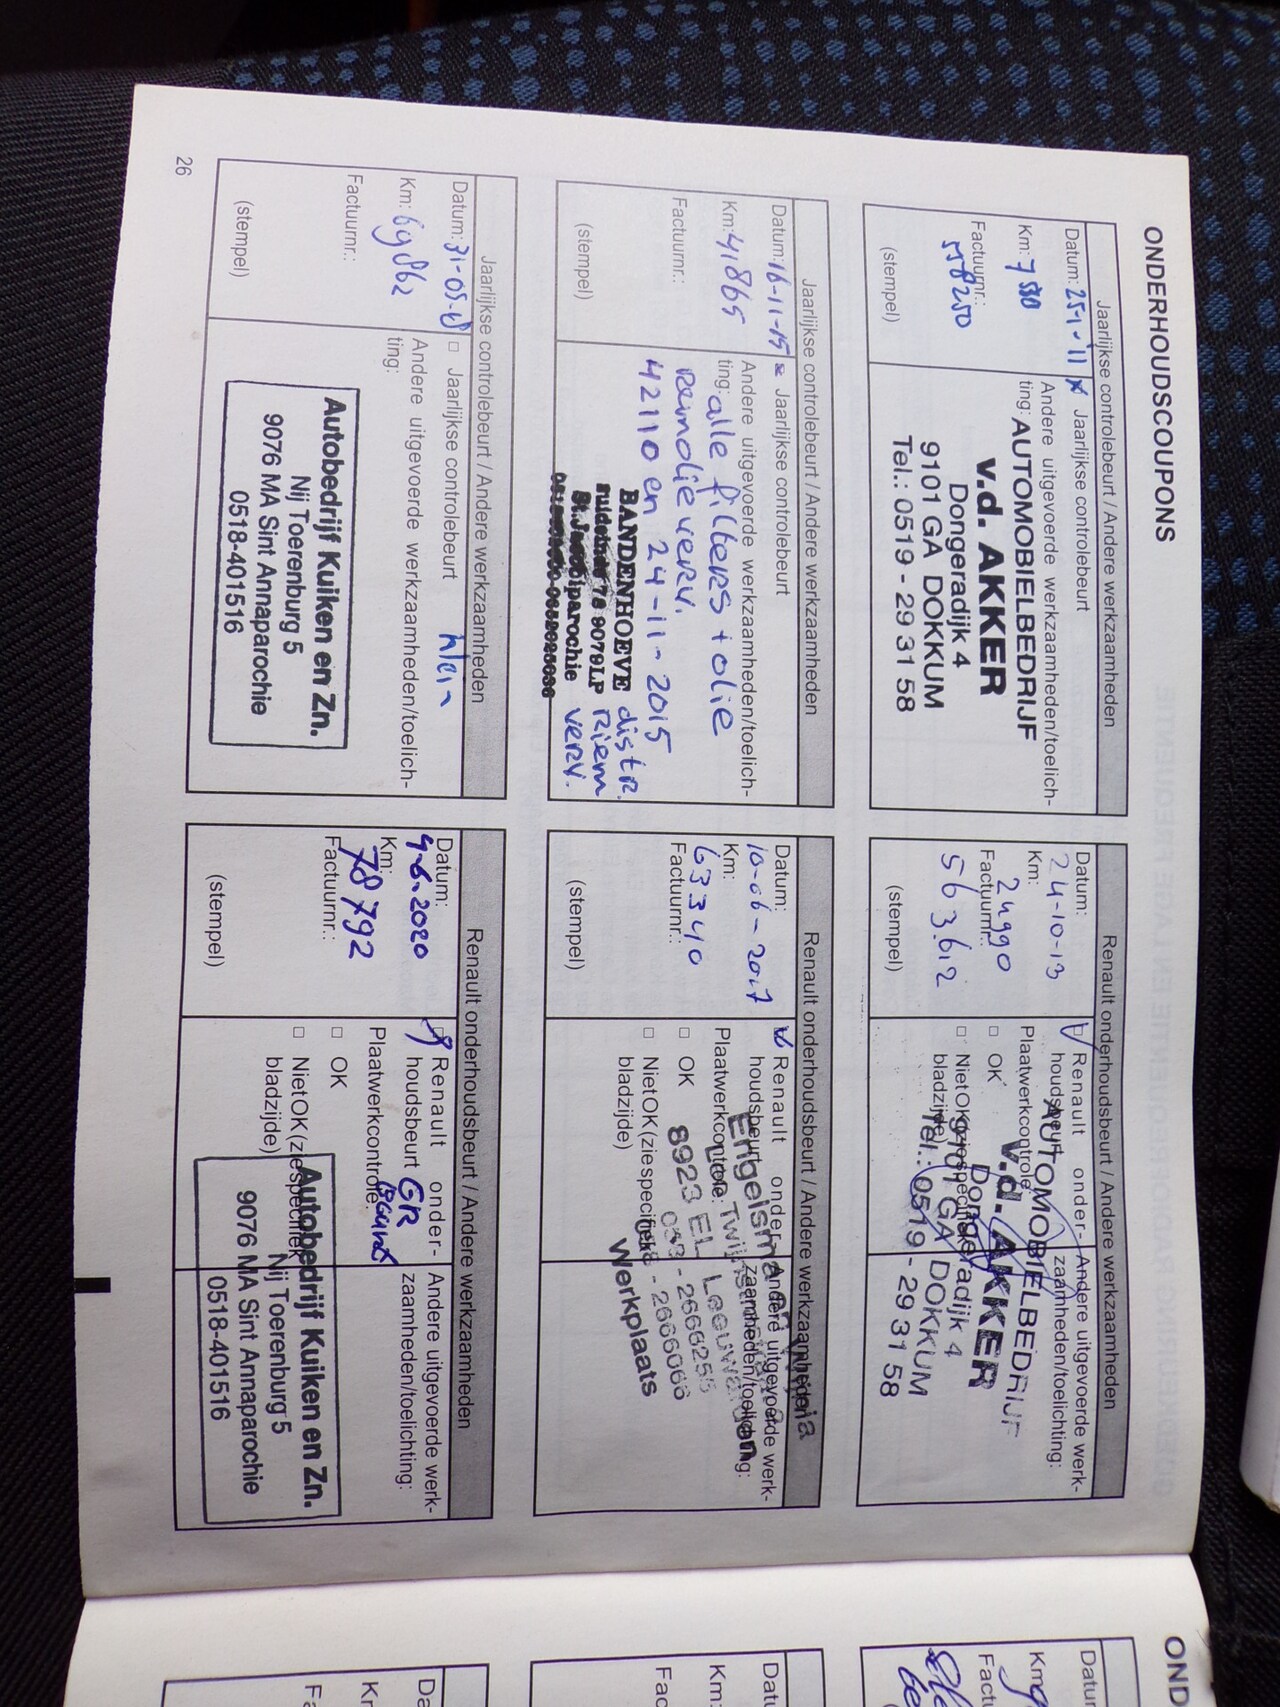 ONDERHOUDSCOUPONS
Jaarlijkse controlebeurt / Andere werkzaamheden
Datum: 25-1-'11
Jaarlijkse controlebeurt
Km:
Andere uitgevoerde werkzaamheden/toelich-
ting:
Factuurnr.:
558250
(stempel)
AUTOMOBIELBEDRIJF
v.d. AKKER
Dongeradijk 4
9101 GA DOKKUM
Tel.: 0519 - 29 31 58
Renault onderhoudsbeurt / Andere werkzaamheden
Datum:
24-10-13
Km:
24990
Factuurnr.:
563612
(stempel)
Renault onder-
houdsbeurt
Plaatwerkcontrole:
OK
Niet OK (zie specifiek
bladzijde)
Andere uitgevoerde werk-
zaamheden/toelichting:
AUTOMOBIELBEDRIJF
v.d. AKKER
Dongeradijk 4
9101 GA DOKKUM
Tel.: 0519 - 29 31 58
Jaarlijkse controlebeurt / Andere werkzaamheden
Datum: 16-11-15
Jaarlijkse controlebeurt
Km: 41865
Andere uitgevoerde werkzaamheden/toelich-
ting: alle filters + olie
Factuurnr.:
remolie verv.
42110 en 24-11-2015
distr.
Riem
verv.
(stempel)
BANDENHOEVE
78 9079LP
St. Jacobiparochie
Renault onderhoudsbeurt / Andere werkzaamheden
Datum:
10-06-2017
Km:
63340
Factuurnr.:
(stempel)
Renault onder-
houdsbeurt
Plaatwerkcontrole:
OK
Niet OK (zie specifiek
bladzijde)
Andere uitgevoerde werk-
zaamheden/toelichting:
8923 EL Leeuwarden
- 2666255
- 2666066
Werkplaats
Jaarlijkse controlebeurt / Andere werkzaamheden
Datum: 31-05-18
Jaarlijkse controlebeurt
klein
Km: 69862
Andere uitgevoerde werkzaamheden/toelich-
ting:
Factuurnr.:
(stempel)
Autobedrijf Kuiken en Zn.
Nij Toerenburg 5
9076 MA Sint Annaparochie
0518-401516
Renault onderhoudsbeurt / Andere werkzaamheden
Datum:
4-6-2020
Km:
78792
Factuurnr.:
(stempel)
Renault onder-
houdsbeurt GR
Beurt
Plaatwerkcontrole:
OK
Niet OK (zie specifiek
bladzijde)
Andere uitgevoerde werk-
zaamheden/toelichting:
Autobedrijf Kuiken en Zn.
Nij Toerenburg 5
9076 MA Sint Annaparochie
0518-401516
26
OND
Datum
Km:
Fact
Datu
Km:
Fac
Da
Kr
Fa